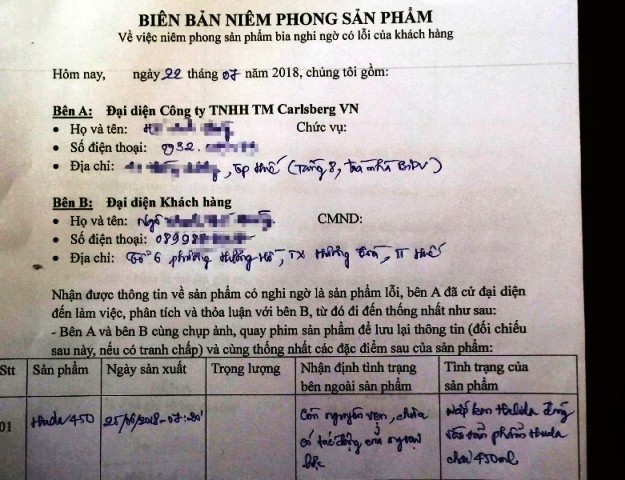 BIÊN BẢN NIÊM PHONG SẢN PHẨM
Về việc niêm phong sản phẩm bia nghi ngờ có lỗi của khách hàng
Hôm nay, ngày 22 tháng 07 năm 2018, chúng tôi gồm:
Bên A: Đại diện Công ty TNHH TM Carlsberg VN
• Họ và tên: Chức vụ:
• Số điện thoại: 0932.
• Địa chỉ: , Tp Huế (Tầng 8, toà nhà BIDV)
Bên B: Đại diện Khách hàng
• Họ và tên: Ngô CMND:
• Số điện thoại: 08998
• Địa chỉ: Tổ 6 phường Hương Hồ, TX Hương Trà, TT Huế
Nhận được thông tin về sản phẩm có nghi ngờ là sản phẩm lỗi, bên A đã cử đại diện
đến làm việc, phân tích và thỏa luận với bên B, từ đó đi đến thống nhất như sau:
- Bên A và bên B cùng chụp ảnh, quay phim sản phẩm để lưu lại thông tin (đối chiếu
sau này, nếu có tranh chấp) và cùng thống nhất các đặc điểm sau của sản phẩm:
Stt Sản phẩm Ngày sản xuất Trọng lượng Nhận định tình trạng Tình trạng của
bên ngoài sản phẩm sản phẩm
01 Huda 450 25/06/2018-07: Còn nguyên vẹn, chưa Nắp ken Halida đóng
có tác động của ngoại vào sản phẩm Huda
lực chai 450ml